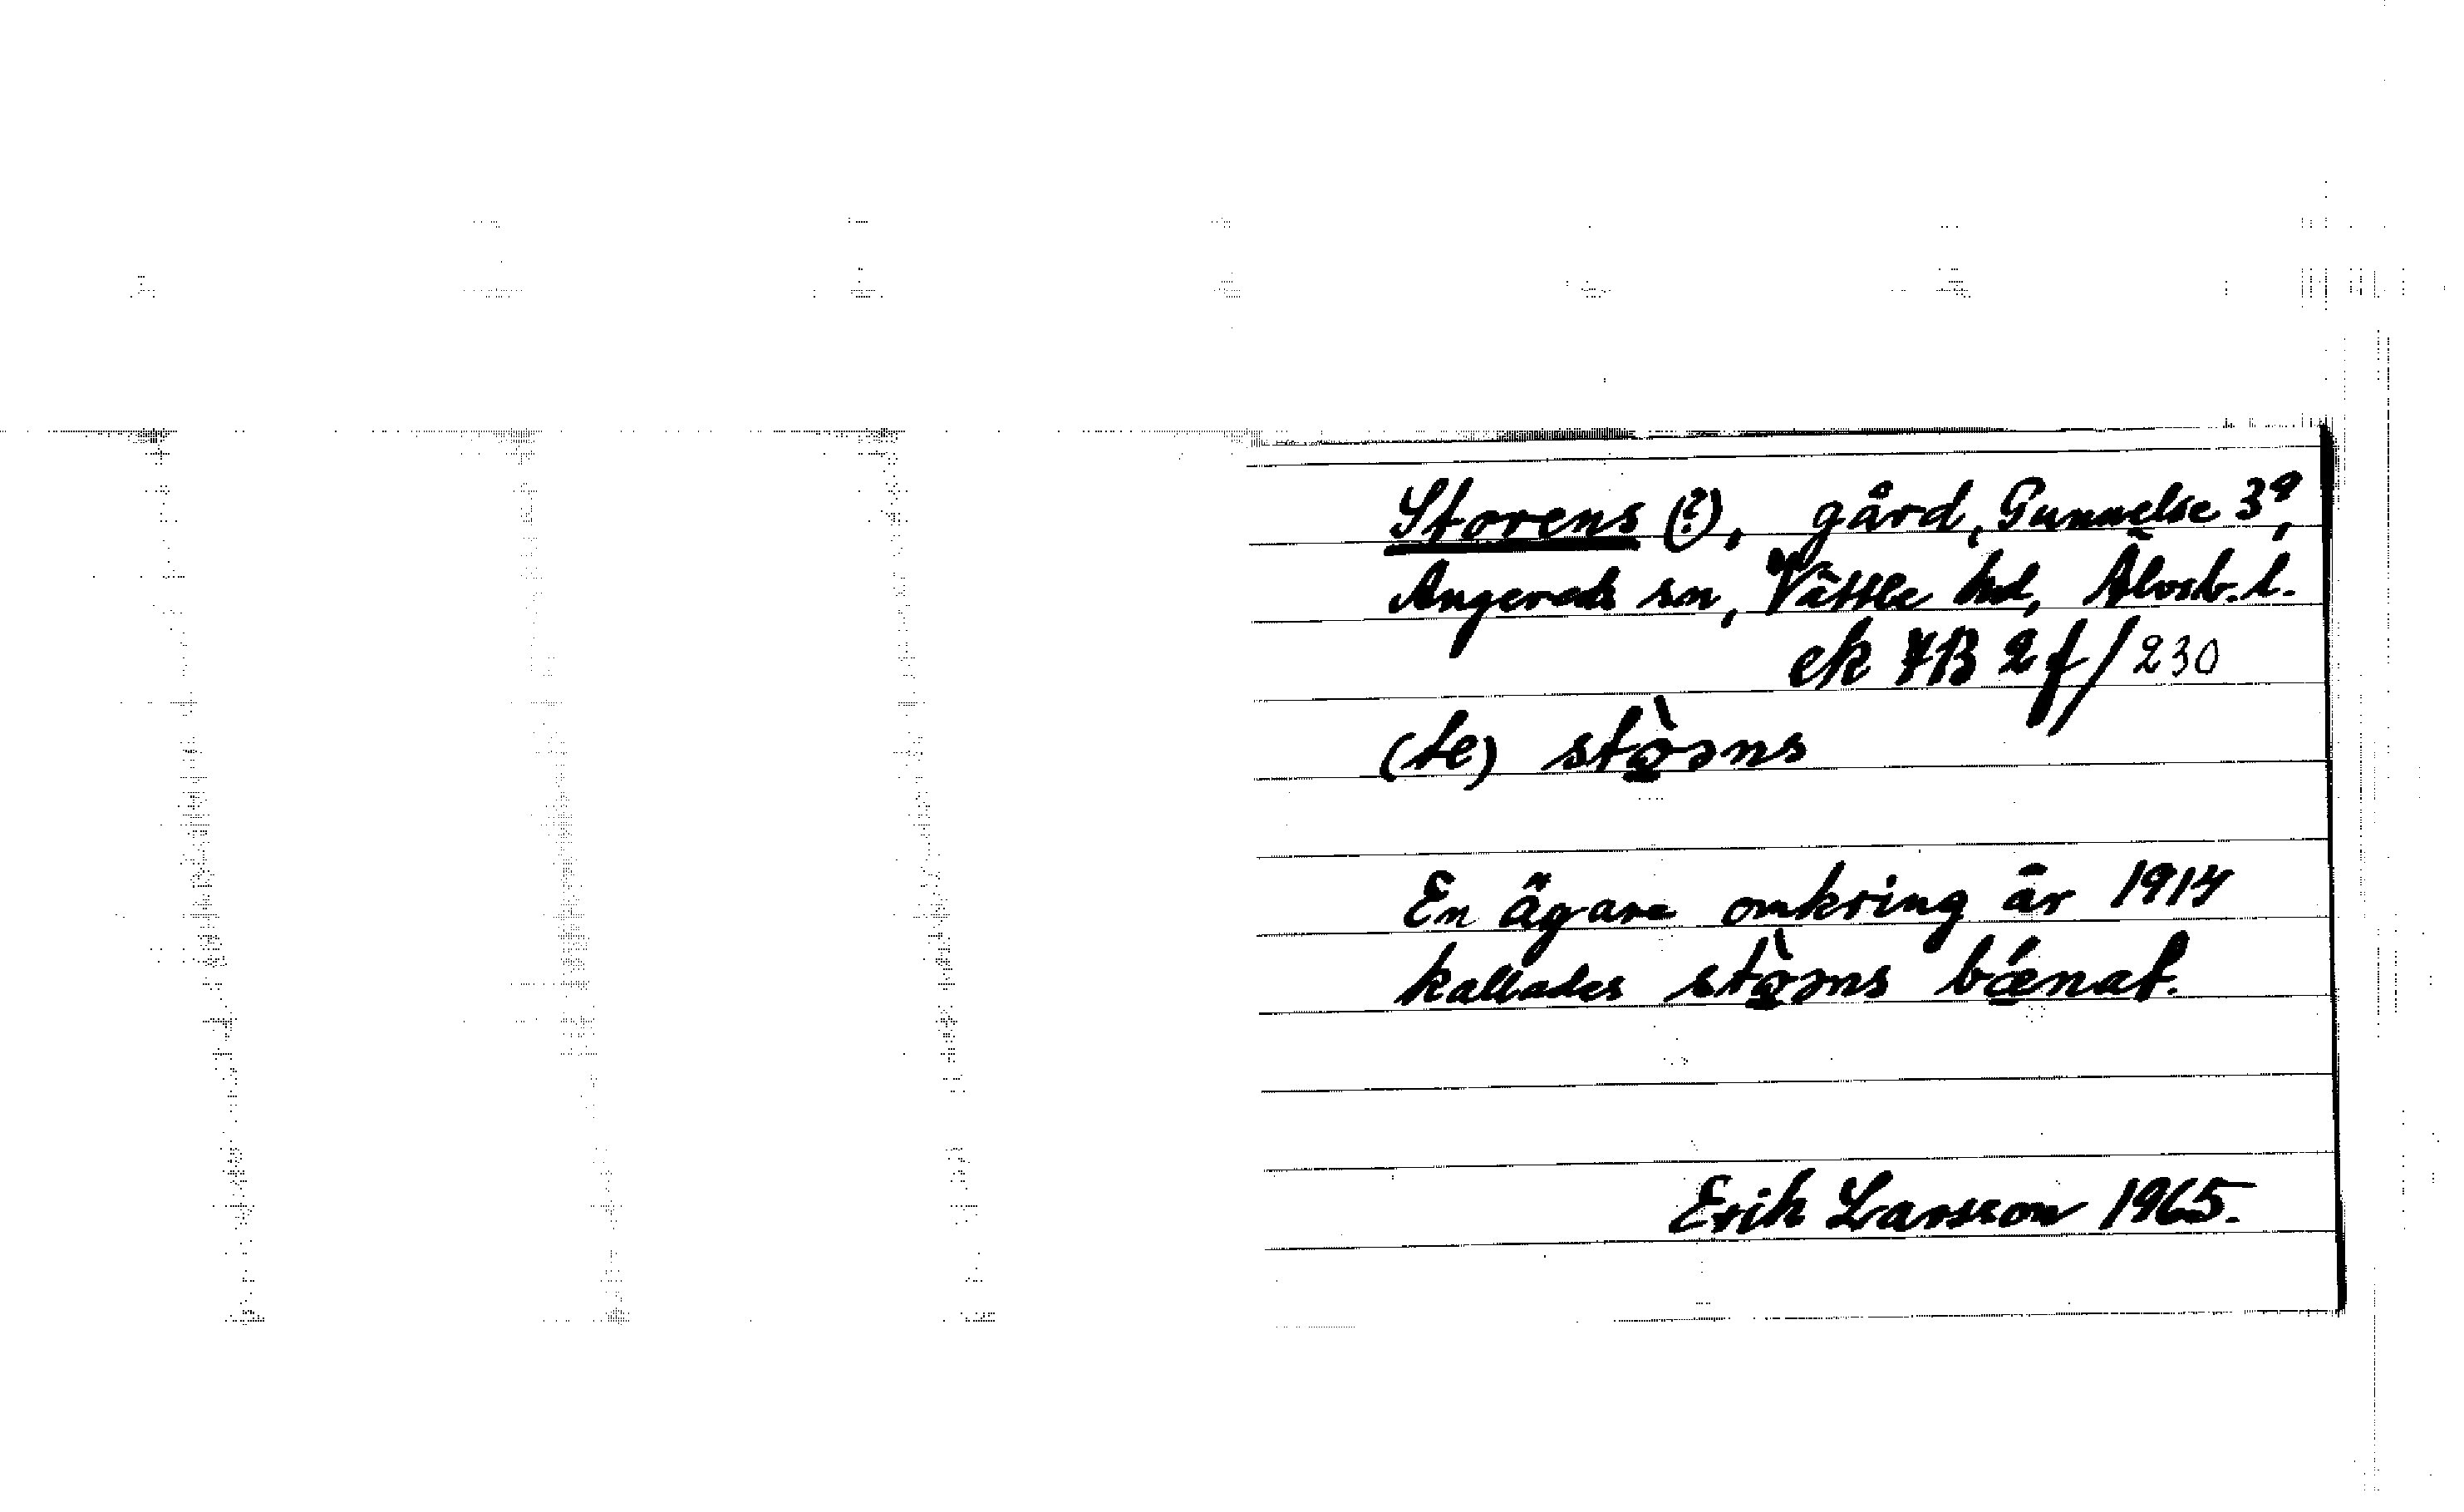 Storens (?), gård, Gunnelse 3⁹,
Angereds sn, Vättle hd, Älvsb. l.
ek 7B 2 f/230
(te) stǫ̀əns
En ägare omkring år 1914
kallades stǫ̀əns bǽnat.
Erik Larsson 1965.